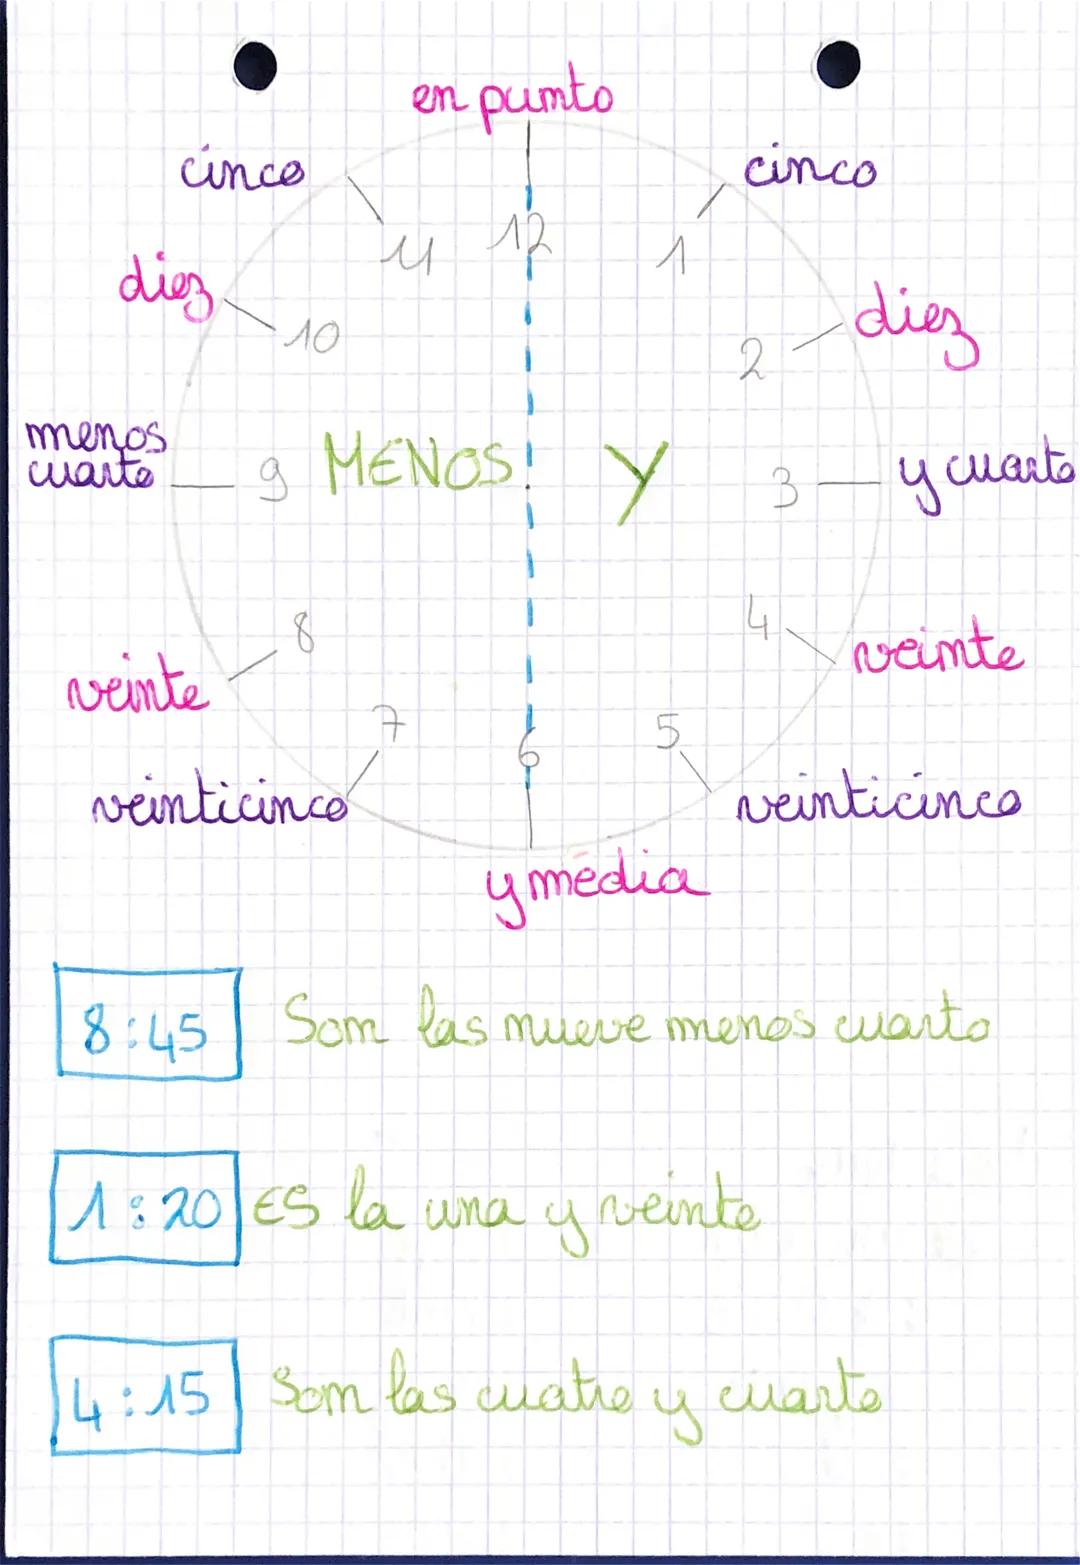 en punto
cinco
cinco
11
12
1
diez
10
2
diez
menos
cuarto
9
MENOS
Y
3
y cuarto
8
4
veinte
veinte
7
6
5
veinticinco
veinticinco
y media
8:45 Son las nueve menos cuarto
1:20 ES la una y veinte
4:15 Son las cuatro y cuarto